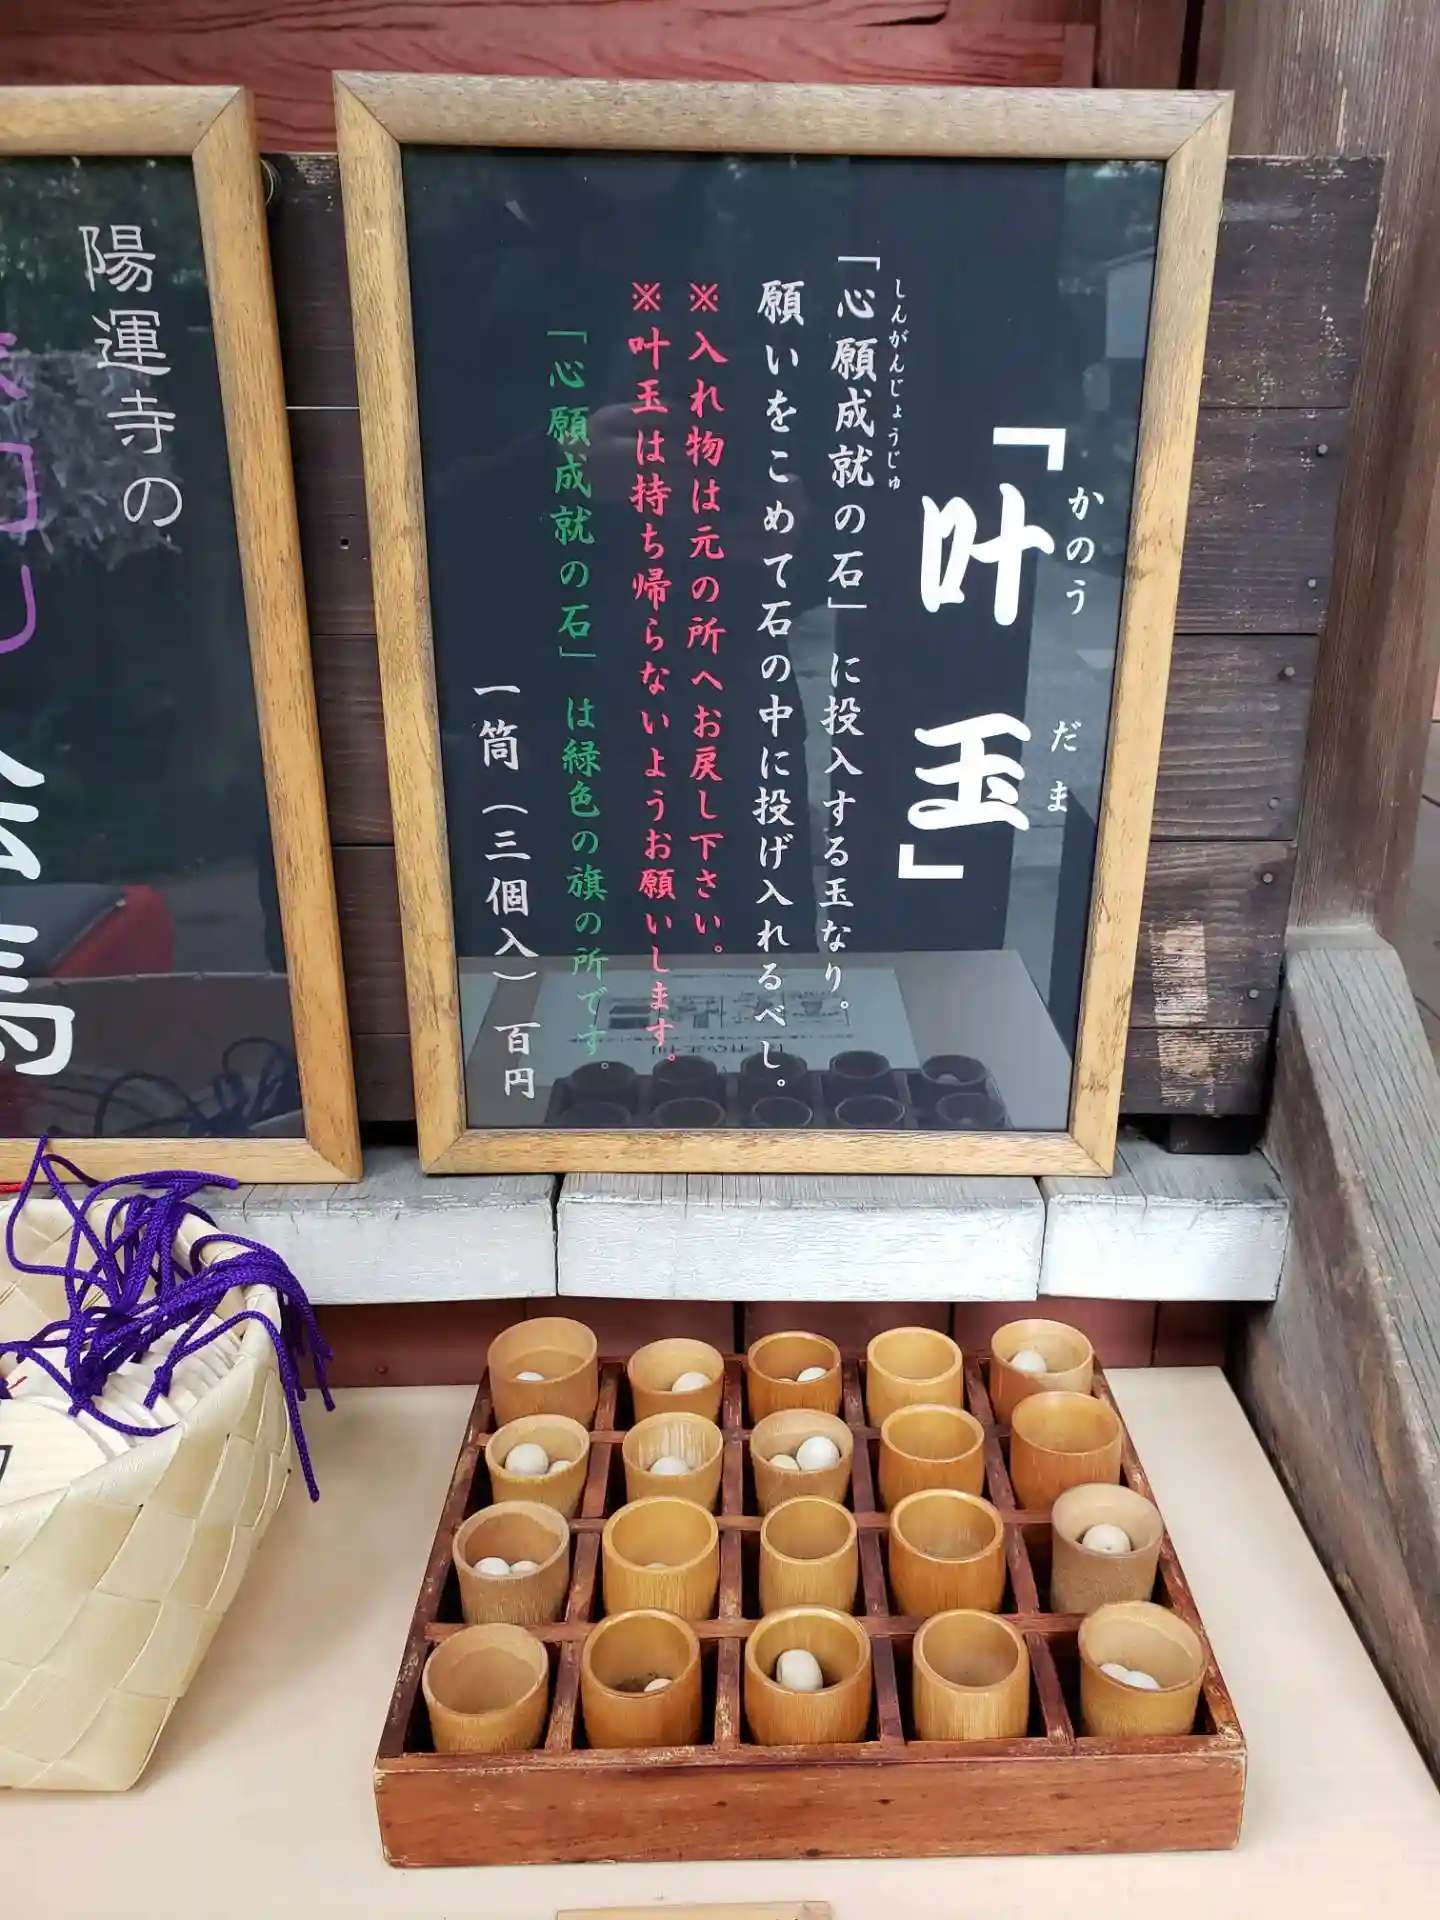 「叶玉」
かのう だま
「心願成就の石」に投入する玉なり。
しんがんじょうじゅ
願いをこめて石の中に投げ入れるべし。
※入れ物は元の所へお戻し下さい。
※叶玉は持ち帰らないようお願いします。
「心願成就の石」は緑色の旗の所です。
一筒（三個入）百円
陽運寺の
絵馬